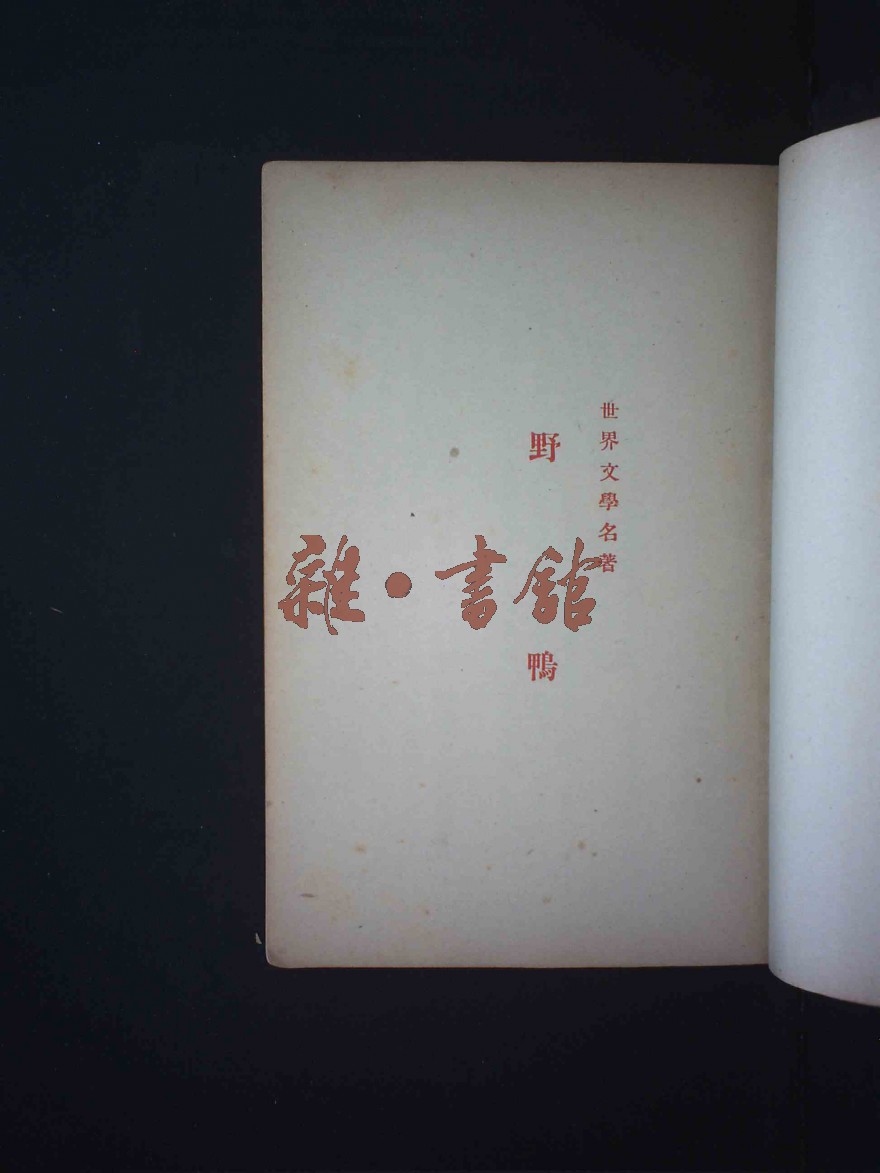 世界文學名著
野鴨
雜·書館